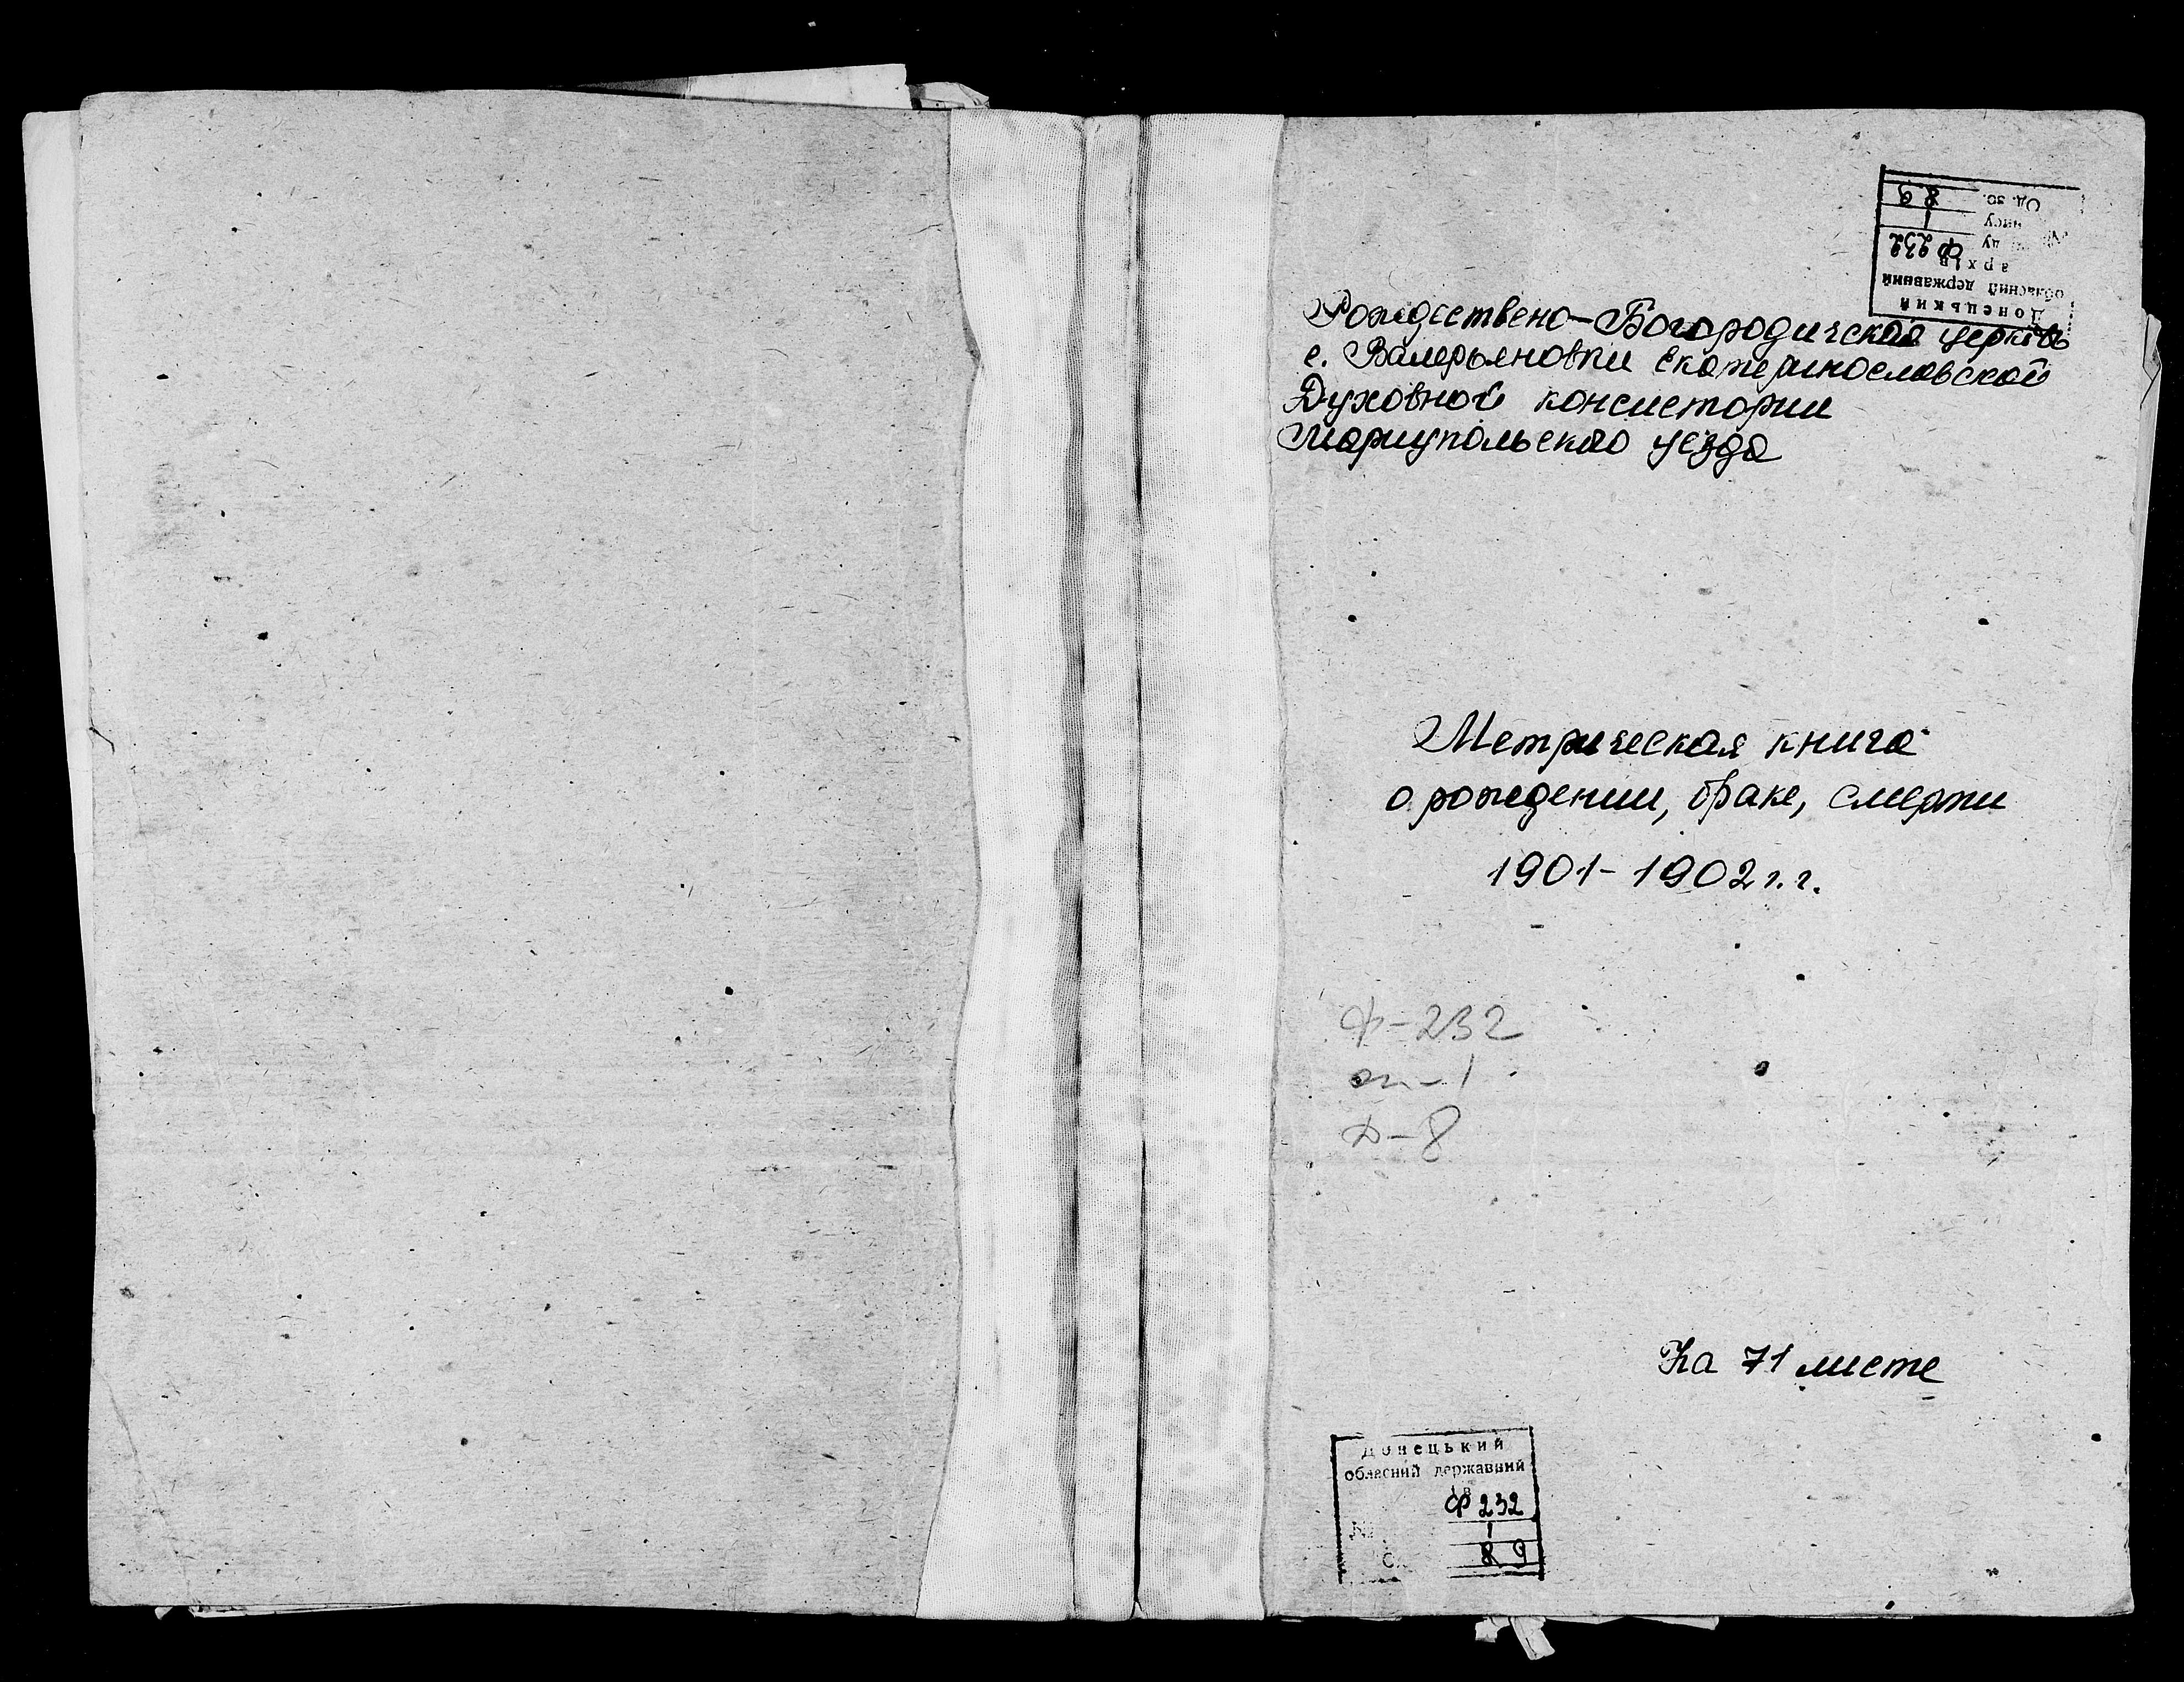 Донецький
обласний державний
архів
Ф 232
1
89
Од. зб.
Рождествено-Богородическая церковь
с. Валерьяновки Екатеринославской
Духовной консистории
Мариупольского уезда
Метрическая книга
о рождении, браке, смерти
1901-1902 г.г.
Ф-232
оп-1
Д-8
На 71 листе
Донецький
обласний державний
Ф 232
1
89